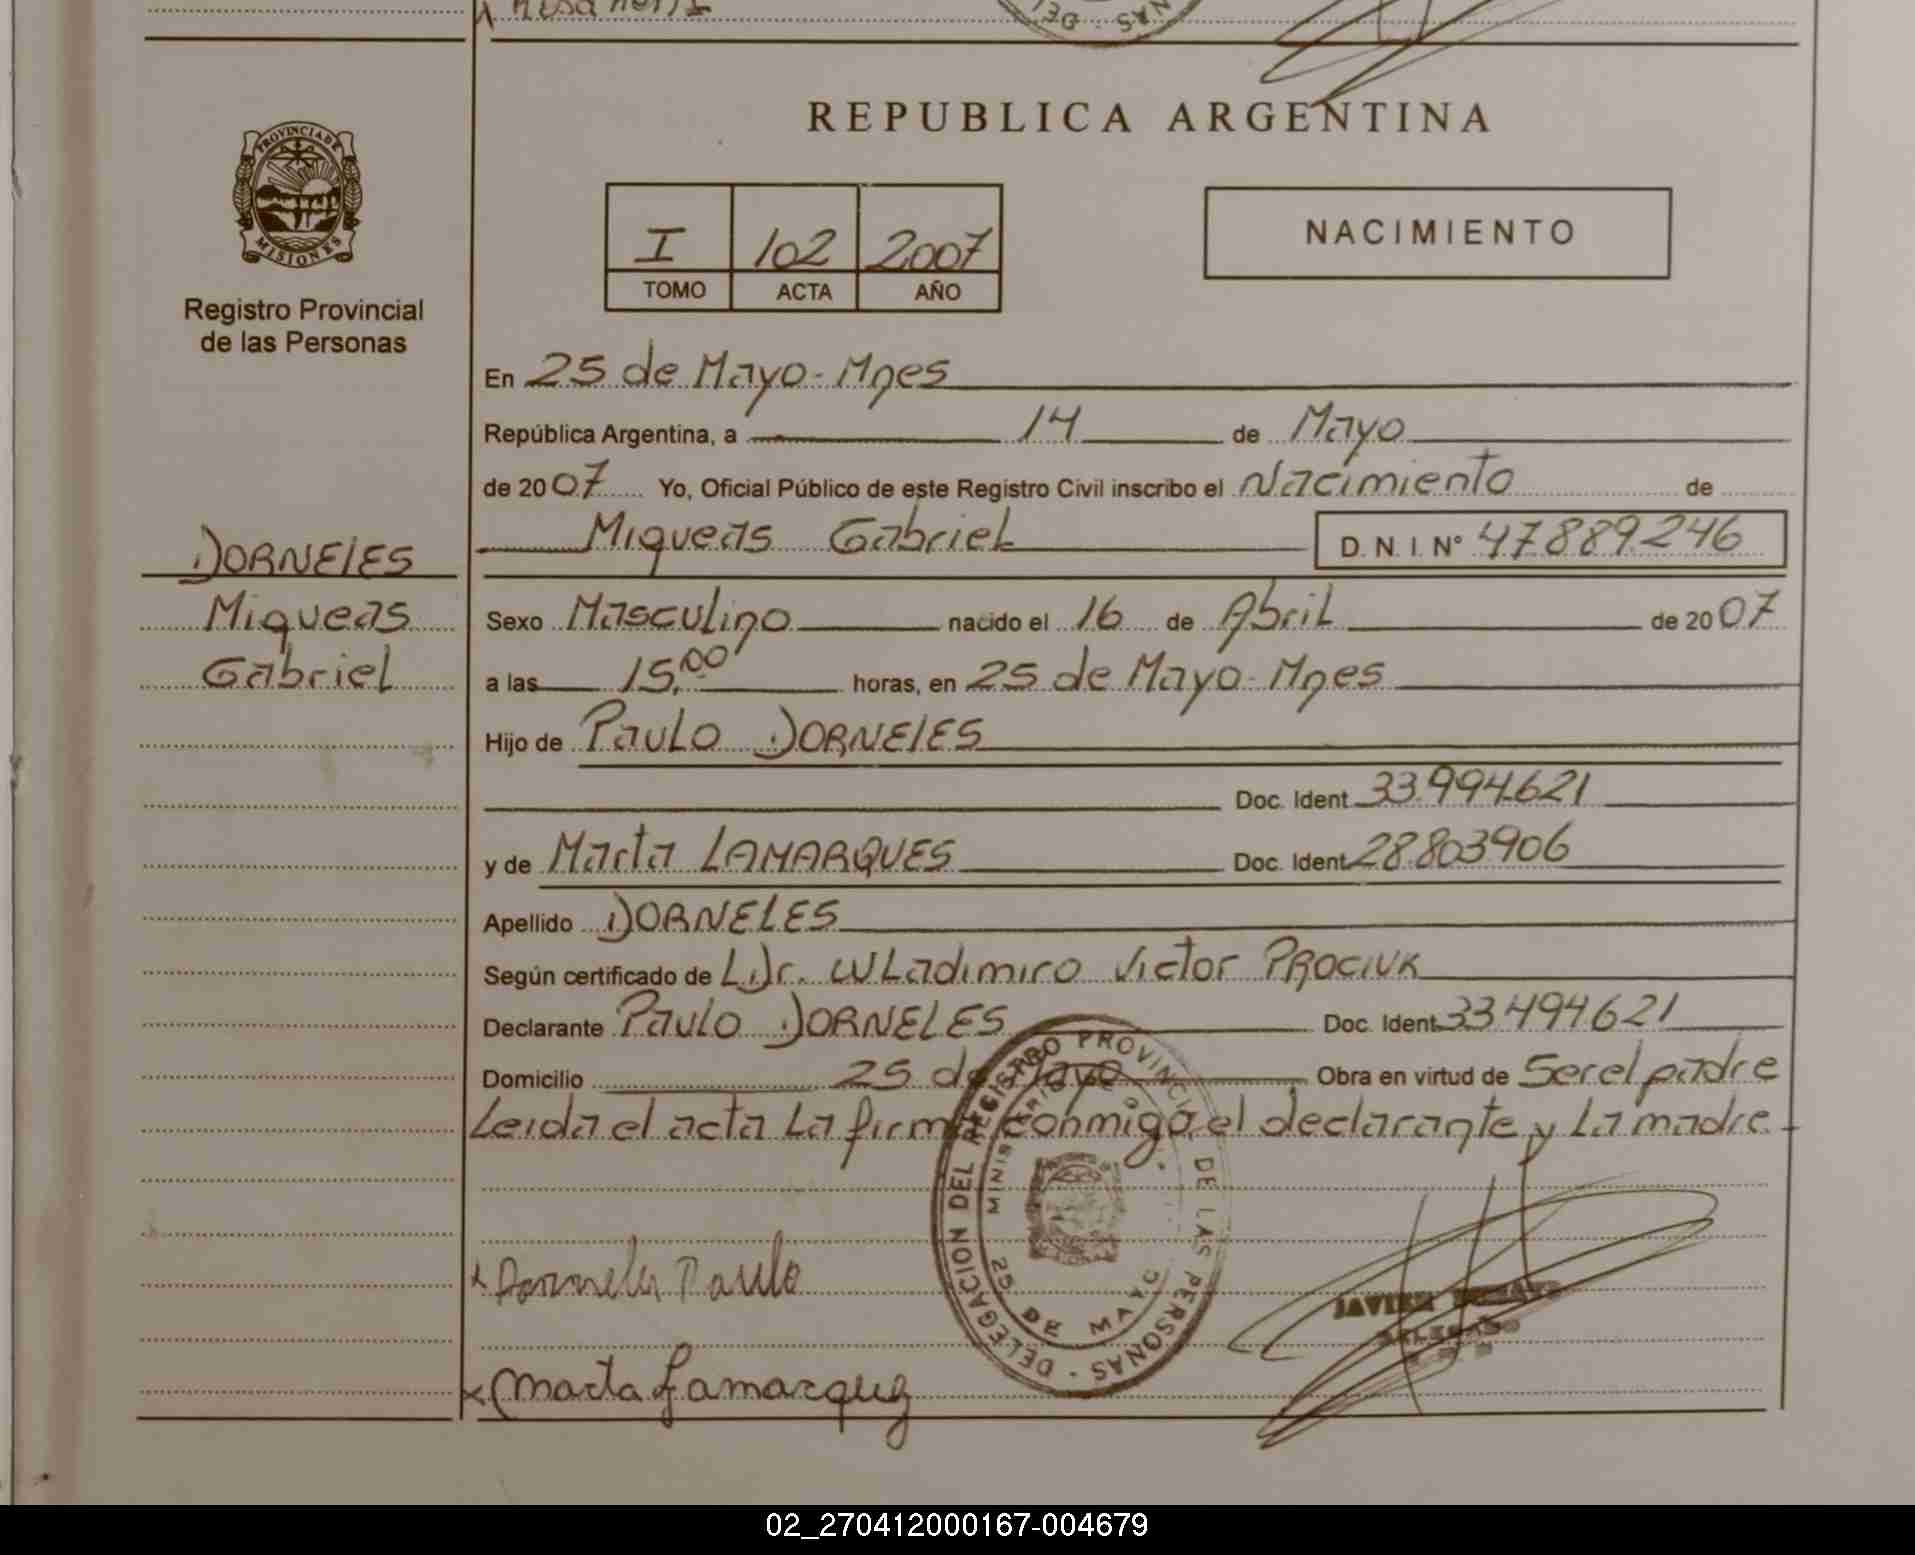 REPUBLICA ARGENTINA
PROVINCIA DE
MISIONES
Registro Provincial
de las Personas
I 102 2007
TOMO ACTA AÑO
NACIMIENTO
En 25 de Mayo - Mnes
República Argentina, a 14 de Mayo
de 2007 Yo, Oficial Público de este Registro Civil inscribo el Nacimiento de
Miqueas Gabriel D. N. I. N° 47.889.246
DORNELES
Miqueas
Gabriel
Sexo Masculino nacido el 16 de Abril de 2007
a las 15,00 horas, en 25 de Mayo - Mnes
Hijo de Paulo DORNELES
Doc. Ident. 33.994.621
y de Marta LAMARQUES Doc. Ident. 28.803906
Apellido DORNELES
Según certificado de L Dr. Wladimiro Victor PROCIUK
Declarante Paulo DORNELES Doc. Ident. 33494621
Domicilio 25 de Mayo Obra en virtud de Ser el padre
Leida el acta La firma conmigo, el declarante y La madre
DELEGACION DEL REGISTRO PROVINCIAL DE LAS PERSONAS
25 DE MAYO
Dorneles Paulo
JAVIER
Marta Lamarques
02_270412000167-004679